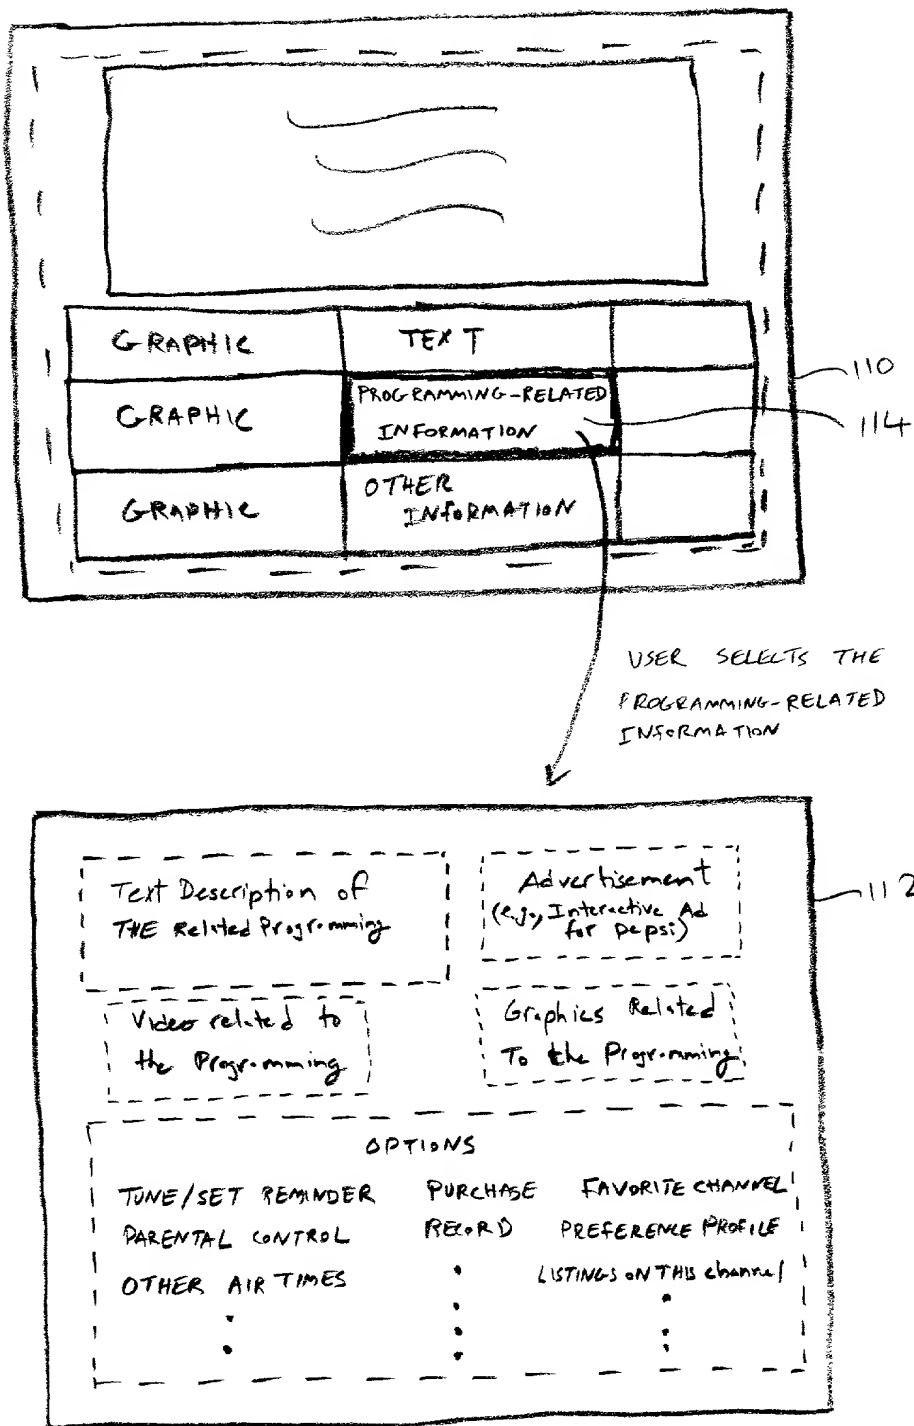 GRAPHIC TEXT
110
GRAPHIC PROGRAMMING-RELATED
INFORMATION
114
GRAPHIC OTHER
INFORMATION
USER SELECTS THE
PROGRAMMING-RELATED
INFORMATION
112
Text Description of
THE Related Programming
Advertisement
(e.g., Interactive Ad
for Pepsi)
Video related to
the Programming
Graphics Related
To the Programming
OPTIONS
TUNE/SET REMINDER PURCHASE FAVORITE CHANNEL
PARENTAL CONTROL RECORD PREFERENCE PROFILE
OTHER AIR TIMES LISTINGS ON THIS channel